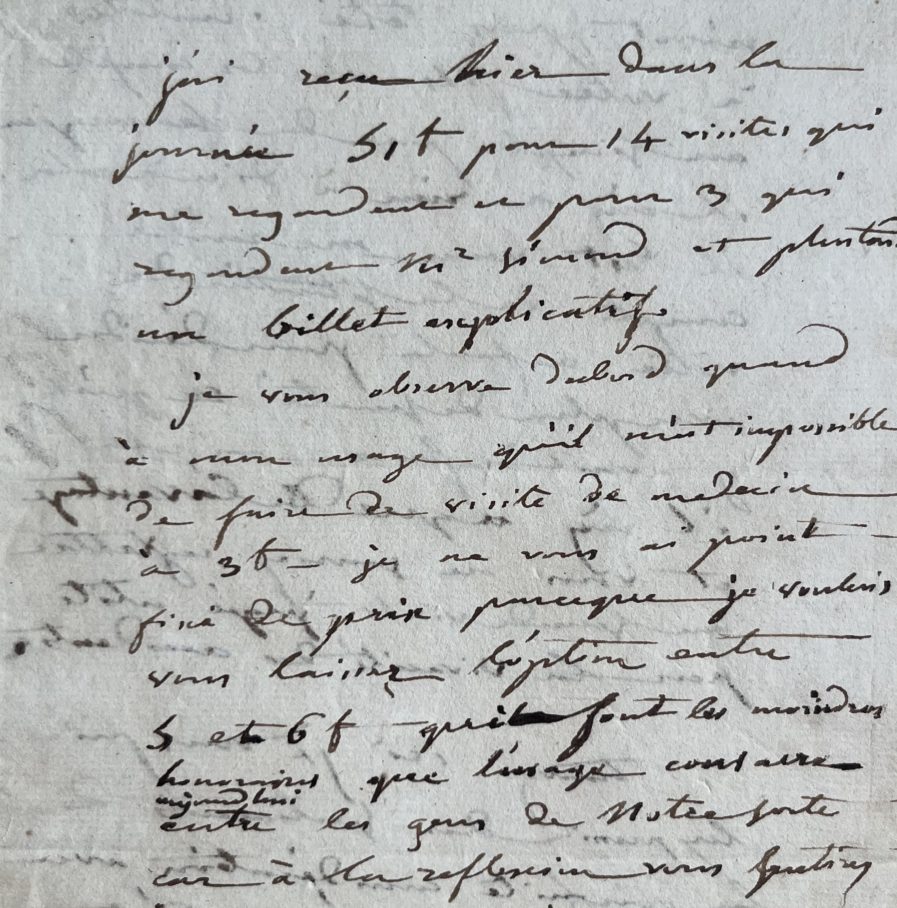 j'ai reçu hier dans la
journée 51 t pour 14 visites qui
me regardent et pour 3 qui
regardent Mr simond et plustau
un billet explicatif.
je vous observe dabord quand
à mon usage qu'il m'est impossible
de faire de visite de medecin
à 3 t – je ne vous ai point –
fixé de prix parceque je voulois
vous laisser l'option entre
5 et 6 f qui sont les moindres
honoraires que l'usage consacre
aujourd'hui
entre les gens de Notre sorte
car à la reflexion vous sentirez